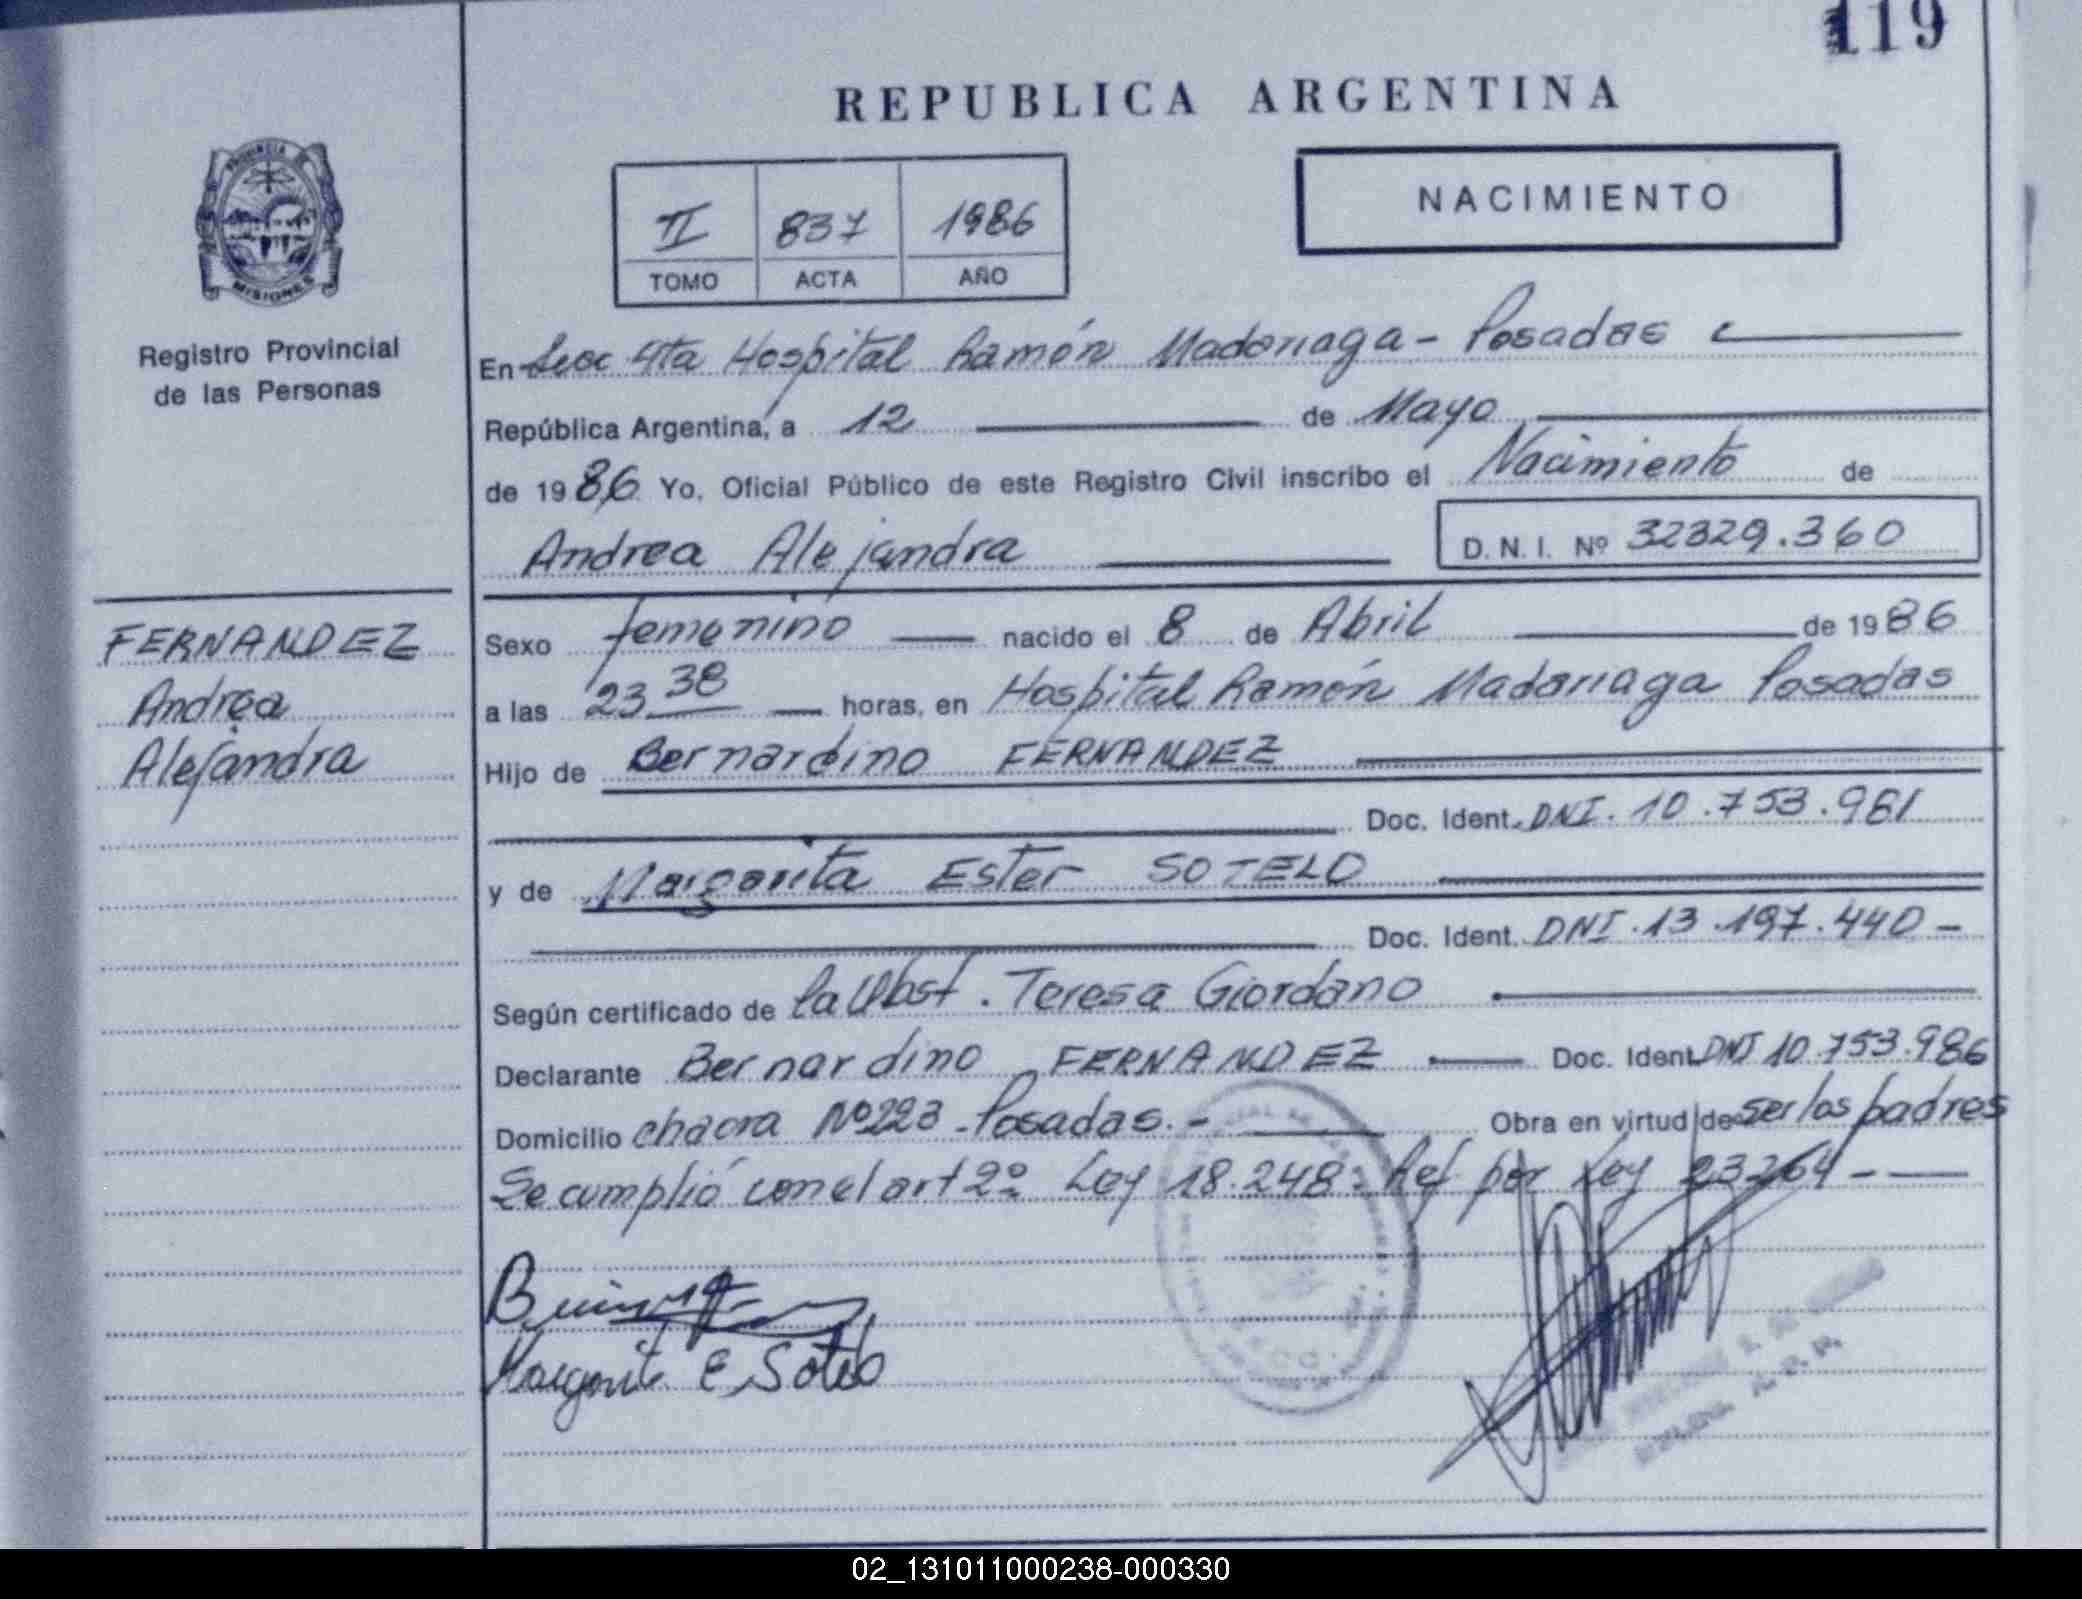 119
REPUBLICA ARGENTINA
PROVINCIA DE
MISIONES
Registro Provincial
de las Personas
II 837 1986
TOMO ACTA AÑO
NACIMIENTO
En Secc 4ta Hospital Ramón Madariaga - Posadas
República Argentina, a 12 de Mayo
de 1986 Yo, Oficial Público de este Registro Civil inscribo el Nacimiento de
Andrea Alejandra D. N. I. Nº 32329.360
FERNANDEZ
Andrea
Alejandra
Sexo femenino nacido el 8 de Abril de 1986
a las 23 38 horas, en Hospital Ramón Madariaga Posadas
Hijo de Bernardino FERNANDEZ
Doc. Ident. DNI. 10.753.981
y de Margarita Ester SOTELO
Doc. Ident. DNI.13.197.440 -
Según certificado de la Obst. Teresa Giordano
Declarante Bernardino FERNANDEZ Doc. Ident. DNI 10.753.986
Domicilio chacra Nº223 - Posadas. - Obra en virtud de ser los padres
Se cumplió con el art 2º Ley 18.248 : Ref por Ley 23264 -
Margarita E. Sotelo
02_131011000238-000330